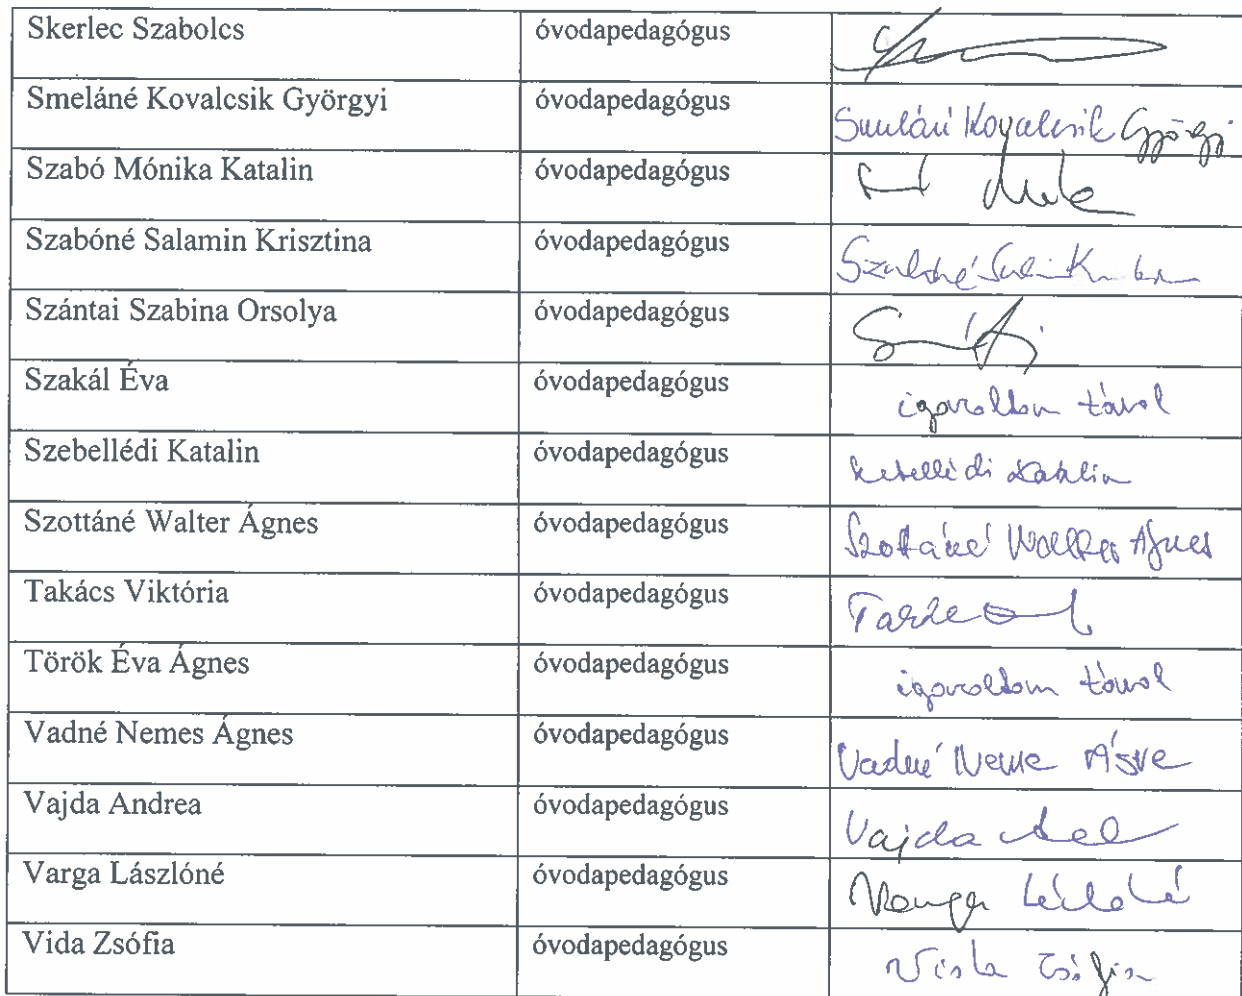 Skerlec Szabolcs óvodapedagógus
Smeláné Kovalcsik Györgyi óvodapedagógus Smeláné Kovalcsik Györgyi
Szabó Mónika Katalin óvodapedagógus
Szabóné Salamin Krisztina óvodapedagógus Szabóné
Szántai Szabina Orsolya óvodapedagógus
Szakál Éva óvodapedagógus igazoltan távol
Szebellédi Katalin óvodapedagógus Szebellédi Katalin
Szottáné Walter Ágnes óvodapedagógus Szottáné Walter Ágnes
Takács Viktória óvodapedagógus
Török Éva Ágnes óvodapedagógus igazoltan távol
Vadné Nemes Ágnes óvodapedagógus Vadné Nemes Ágnes
Vajda Andrea óvodapedagógus Vajda
Varga Lászlóné óvodapedagógus Varga Lászlóné
Vida Zsófia óvodapedagógus Vida Zsófia